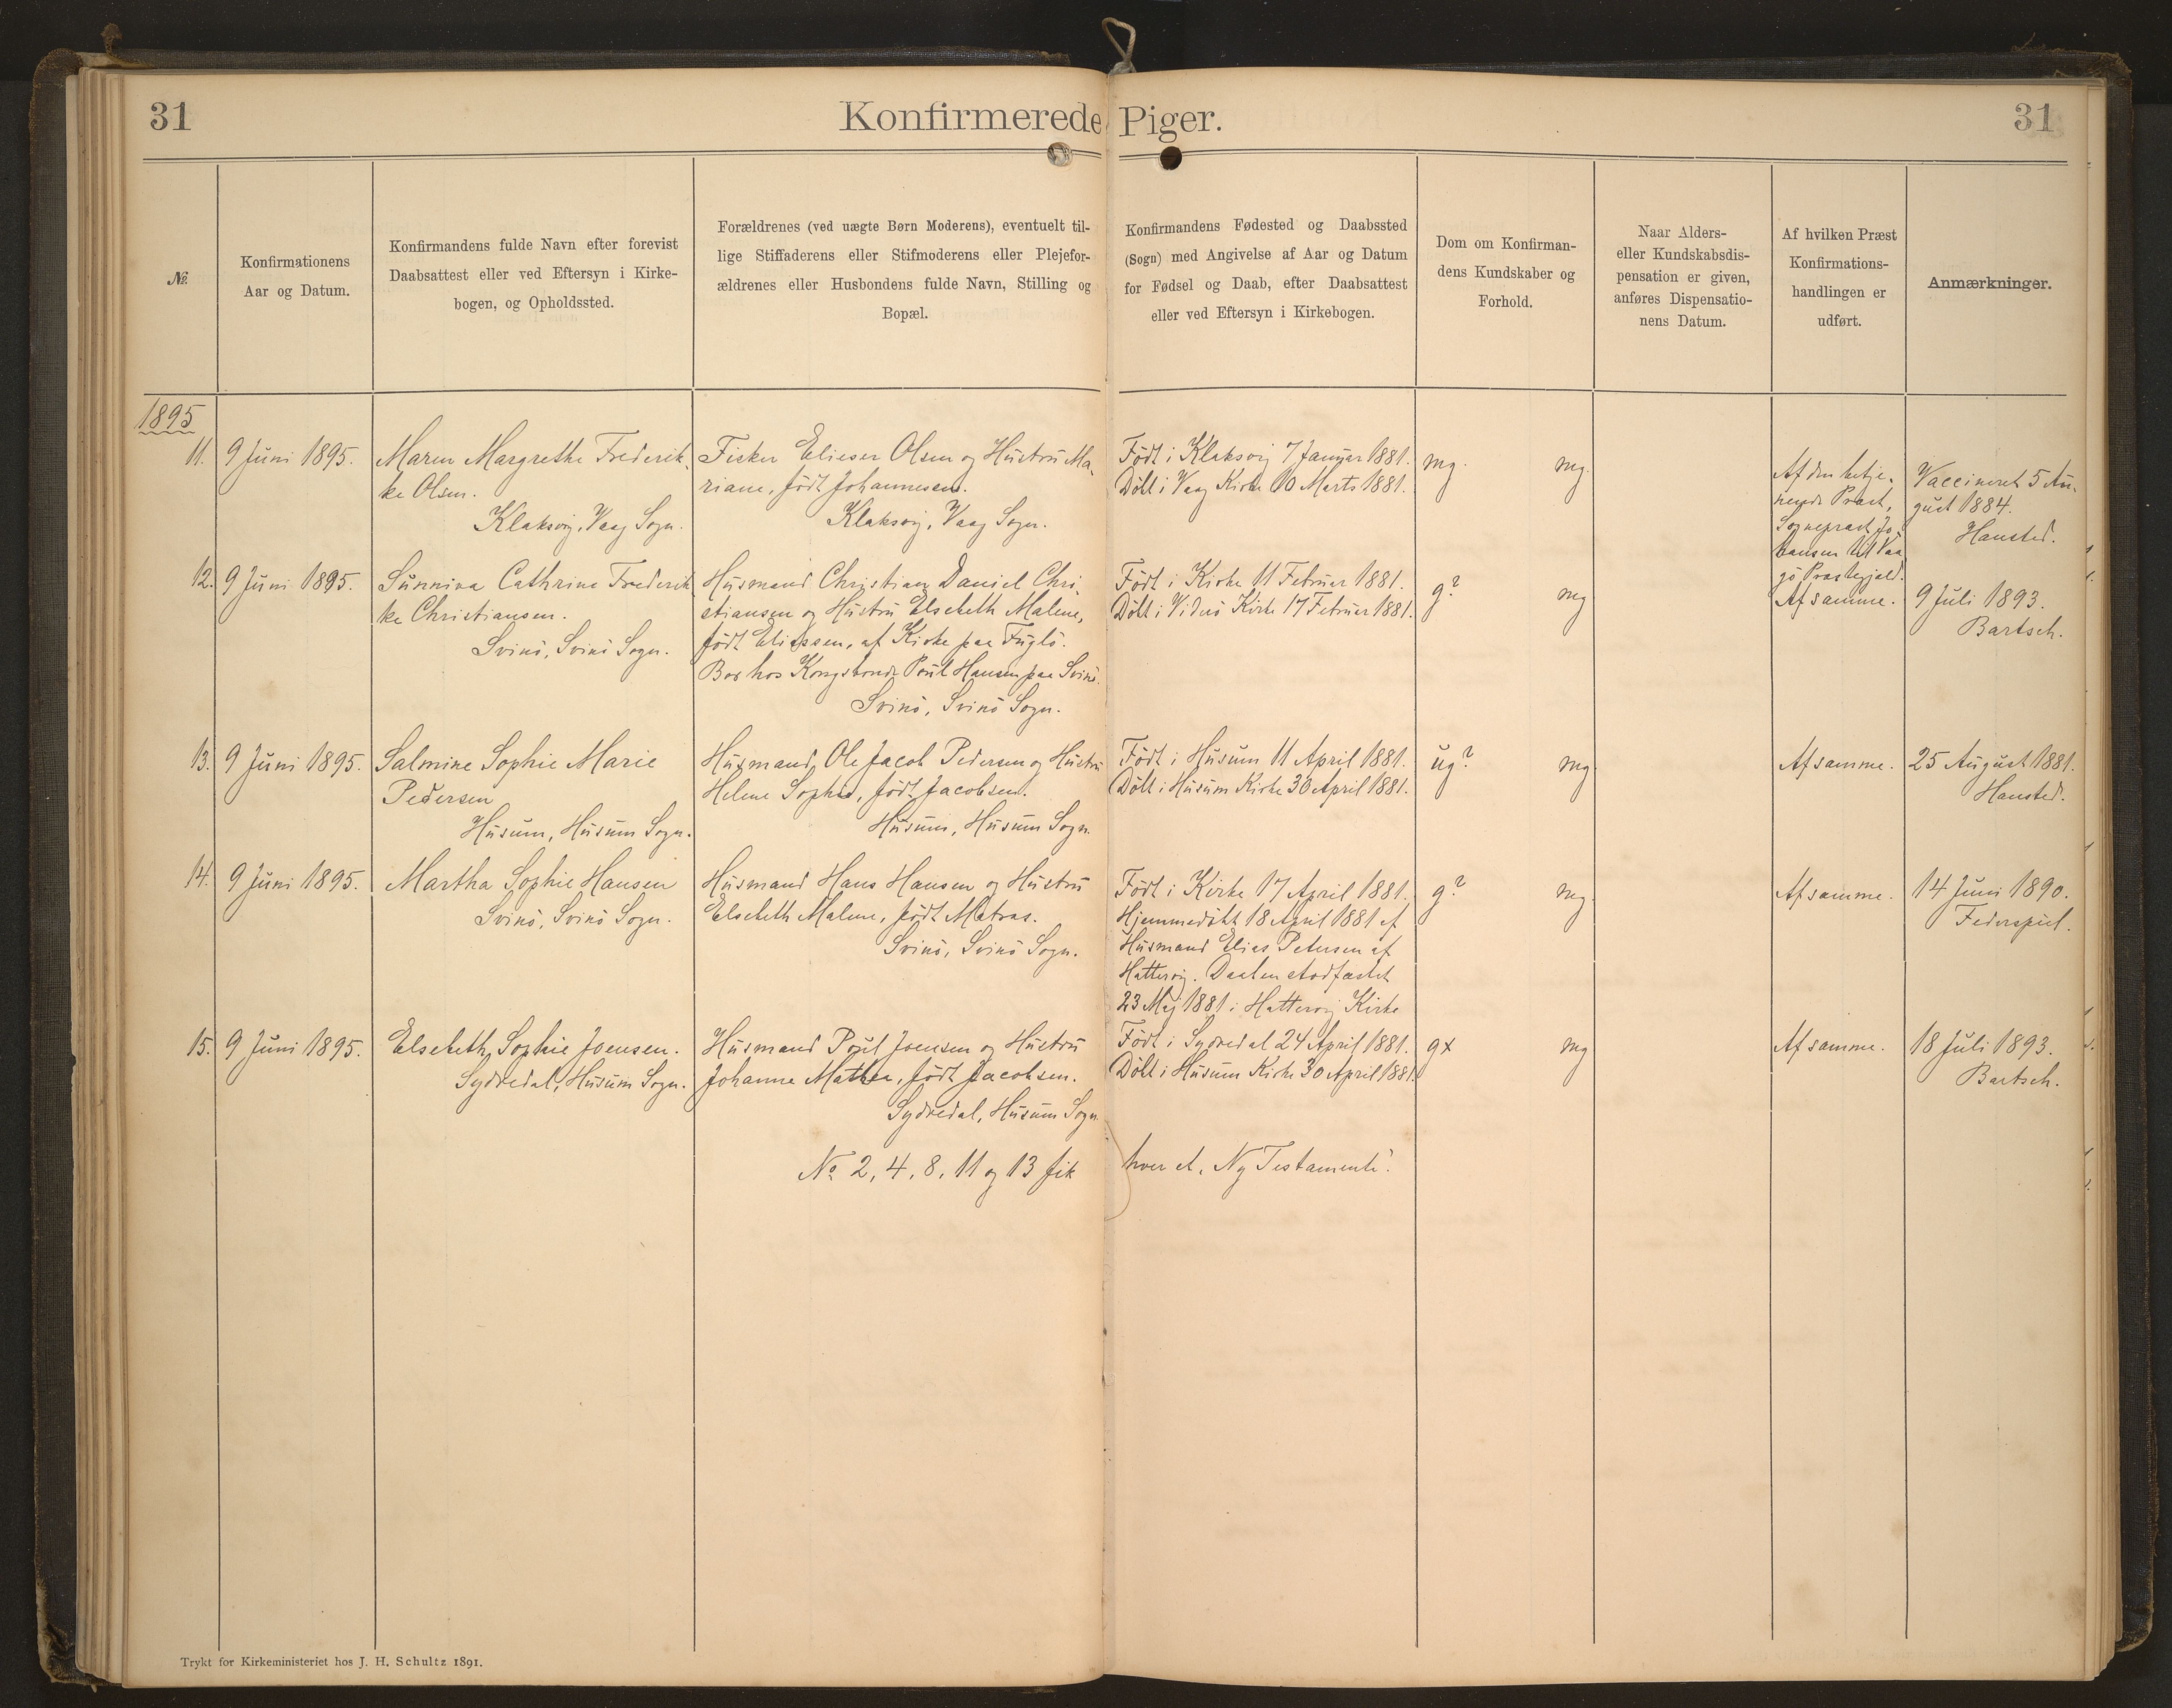 31
Konfirmerede Piger.
31
№.
Konfirmationens
Aar og Datum.
Konfirmandens fulde Navn efter forevist
Daabsattest eller ved Eftersyn i Kirke-
bogen, og Opholdssted.
Forældrenes (ved uægte Børn Moderens), eventuelt til-
lige Stiffaderens eller Stifmoderens eller Plejefor-
ældrenes eller Husbondens fulde Navn, Stilling og
Bopæl.
Konfirmandens Fødested og Daabssted
(Sogn) med Angivelse af Aar og Datum
for Fødsel og Daab, efter Daabsattest
eller ved Eftersyn i Kirkebogen.
Dom om Konfirman-
dens Kundskaber og
Forhold.
Naar Alders-
eller Kundskabsdis-
pensation er given,
anføres Dispensatio-
nens Datum.
Af hvilken Præst
Konfirmations-
handlingen er
udført.
Anmærkninger.
1895
11.
9 Juni 1895.
Maren Margrethe Frederik-
ke Olsen.
Klaksvig, Vaag Sogn.
Fisker Elieser Olsen og Hustru Ma-
riane, født Johannesen.
Klaksvig, Vaag Sogn.
Født i Klaksvig 7 Januar 1881.
Döbt i Vaag Kirke 10 Marts 1881.
mg.
mg.
Af den betje-
nende Præst,
Sognepræst Jo-
hansen til Vaa
gö Præstegjæld.
Vaccineret 5 Au-
gust 1884.
Hansted.
12.
9 Juni 1895.
Sunniva Cathrine Frederik
ke Christiansen.
Svinö, Svinö Sogn.
Husmand Christian Daniel Chri-
stiansen og Hustru Elsebeth Malene,
født Eliassen, af Kirke paa Fuglö.
Bor hos Kongsbonde Poul Hansen paa Svinö.
Svinö, Svinö Sogn.
Født i Kirke 11 Februar 1881.
Döbt i Viderö Kirke 17 Februar 1881.
g?
mg
Af samme.
9 Juli 1893.
Bartsch.
13.
9 Juni 1895.
Salmine Sophie Marie
Pedersen
Husum, Husum Sogn.
Husmand Ole Jacob Pedersen og Hustru
Helene Sophie, født Jacobsen.
Husum, Husum Sogn.
Født i Husum 11 April 1881.
Döbt i Husum Kirke 30 April 1881.
ug?
mg
Af samme.
25 August 1881.
Hansted.
14.
9 Juni 1895.
Martha Sophie Hansen
Svinö, Svinö Sogn.
Husmand Hans Hansen og Hustru
Elsebeth Malene, født Matras.
Svinö, Svinö Sogn.
Født i Kirke 17 April 1881.
Hjemmedöbt 18 April 1881 af
Husmand Elias Petersen af
Hattervig. Daaben stadfæstet
23 Maj 1881 i Hattervig Kirke
g?
mg.
Af samme.
14 Juni 1890.
Federspiel.
15.
9 Juni 1895.
Elsebeth Sophie Joensen.
Sydredal, Husum Sogn.
Husmand Poul Joensen og Hustru
Johanne Mathea, født Jacobsen.
Sydredal, Husum Sogn.
Født i Sydredal 24 April 1881.
Döbt i Husum Kirke 30 April 1881.
gx
mg
Af samme.
18 Juli 1893.
Bartsch.
№ 2, 4, 8, 11 og 13 fik hver et "Ny Testamente".
Trykt for Kirkeministeriet hos J. H. Schultz 1891.